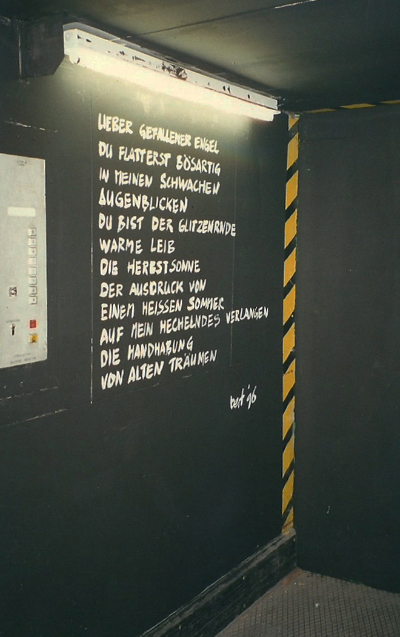 LIEBER GEFALLENER ENGEL
DU FLATTERST BÖSARTIG
IN MEINEN SCHWACHEN
AUGENBLICKEN
DU BIST DER GLITZERNDE
WARME LEIB
DIE HERBSTSONNE
DER AUSDRUCK VON
EINEM HEISSEN SOMMER
AUF MEIN HECHELNDES VERLANGEN
DIE HANDHABUNG
VON ALTEN TRÄUMEN